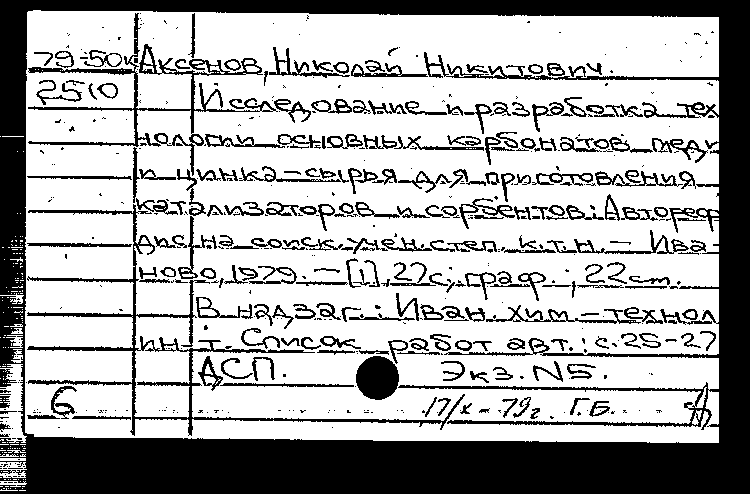 79-50к Аксенов, Николай Никитович.
2510 Исследование и разработка тех
нологии основных карбонатов меди
и цинка-сырья для приготовления
катализаторов и сорбентов: Автореф
дис. на соиск. учен. степ. к.т.н. — Ива-
ново, 1979. — [1], 27с; граф. ; 22 cm.
В надзаг.: Иван. хим.-технол
ин-т. Список работ авт.: с. 25-27
ДСП. Экз. N5.
6 17/X-79г. Г.Б.